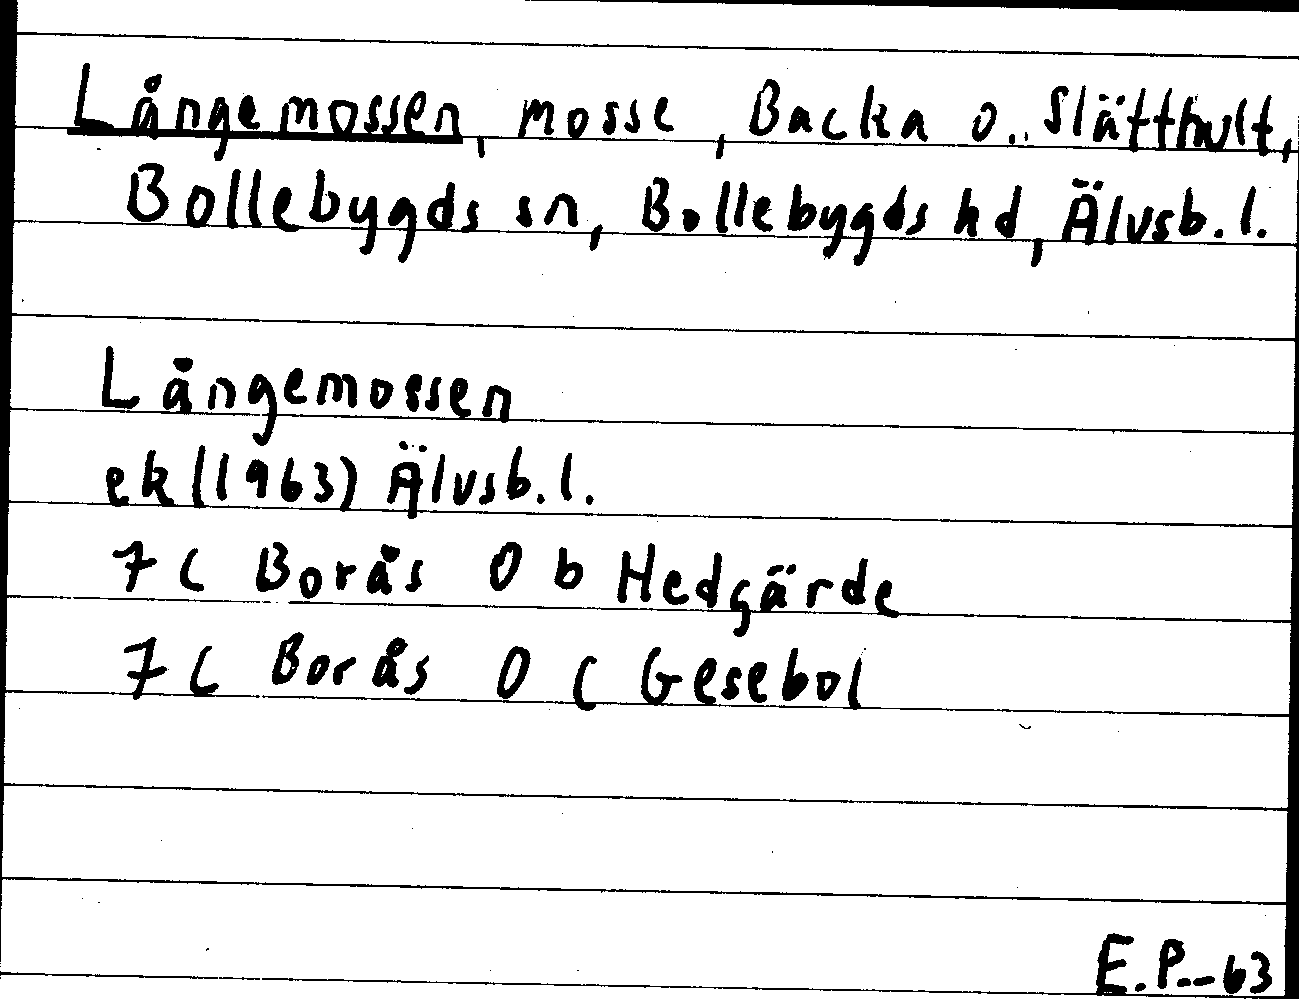 Långemossen, mosse, Backa o. Slätthult,
Bollebygds sn, Bollebygds hd, Älvsb. l.
Långemossen
ek (1963) Älvsb. l.
7 C Borås 0 b Hedgärde
7 C Borås 0 c Gesebol
E.P.-63